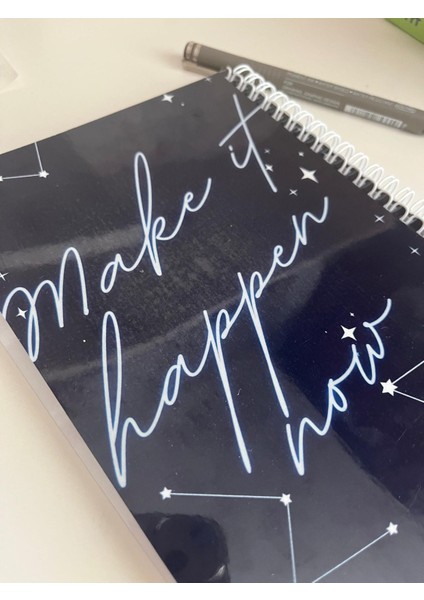 Make it
happen
now